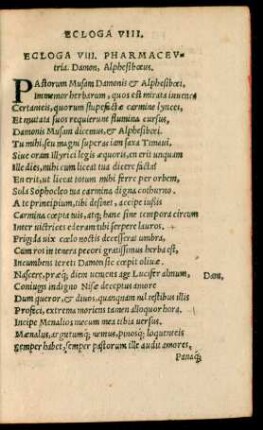 ECLOGA VIII.
ECLOGA VIII. PHARMACEV-
tria. Damon, Alphesibœus.
PAstorum Musam Damonis & Alphesibœi,
Immemor herbarum, quos est mirata iuvenca
Certanteis, quorum stupefactæ carmine lynces,
Et mutata suos requierunt flumina cursus,
Damonis Musam dicemus, & Alphesibœi.
Tu mihi seu magni superas iam saxa Timaui,
Siue oram Illyrici legis æquoris, en erit unquam
Ille dies, mihi cum liceat tua dicere facta?
En erit, ut liceat totum mihi ferre per orbem,
Sola Sophocleo tua carmina digna cothurno.
A te principium, tibi desinet, accipe iussis
Carmina cœpta tuis, atq; hanc sine tempora circum
Inter uictrices ederam tibi serpere lauros.
Frigida uix cœlo noctis decesserat umbra,
Cum ros in tenera pecori gratissimus herba est,
Incumbens tereti Damon sic cœpit oliuæ.
Nascere, præq; diem ueniens age Lucifer almum,
Dam.
Coniugis indigno Nisæ deceptus amore
Dum queror, & diuos, quanquam nil testibus illis
Profeci, extrema moriens tamen alloquor hora.
Incipe Menalios mecum mea tibia uersus.
Mænalus, argutumq; nemus, pinosq; loquenteis
Semper habet, semper pastorum ille audit amores,
Panaq;